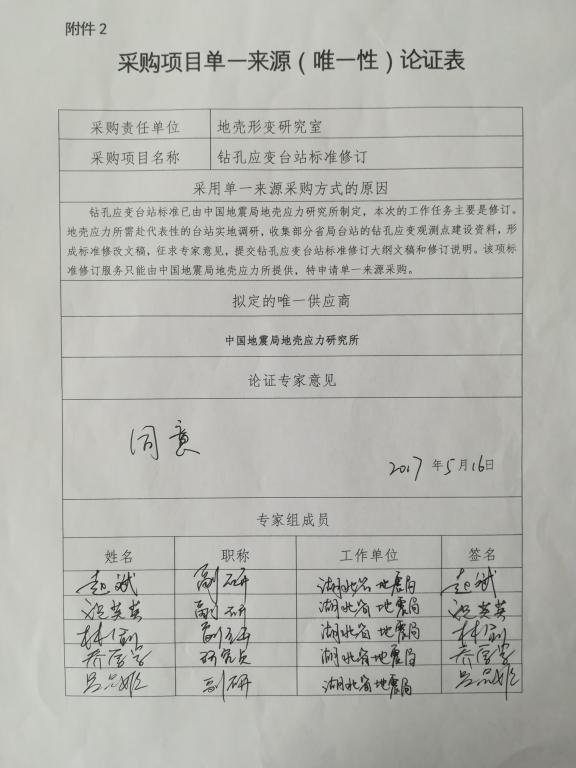 附件 2
采购项目单一来源（唯一性）论证表
采购责任单位 地壳形变研究室
采购项目名称 钻孔应变台站标准修订
采用单一来源采购方式的原因
钻孔应变台站标准已由中国地震局地壳应力研究所制定，本次的工作任务主要是修订。
地壳应力所需赴代表性的台站实地调研，收集部分省局台站的钻孔应变观测点建设资料，形
成标准修改文稿，征求专家意见，提交钻孔应变台站标准修订大纲文稿和修订说明。该项标
准修订服务只能由中国地震局地壳应力所提供，特申请单一来源采购。
拟定的唯一供应商
中国地震局地壳应力研究所
论证专家意见
同意
2017 年 5 月 16 日
专家组成员
姓名 职称 工作单位 签名
赵斌 副研 湖北省地震局 赵斌
副研 湖北省地震局
林 湖北省地震局 林
乔学军 研究员 湖北省地震局 乔学军
吕品姬 副研 湖北省地震局 吕品姬